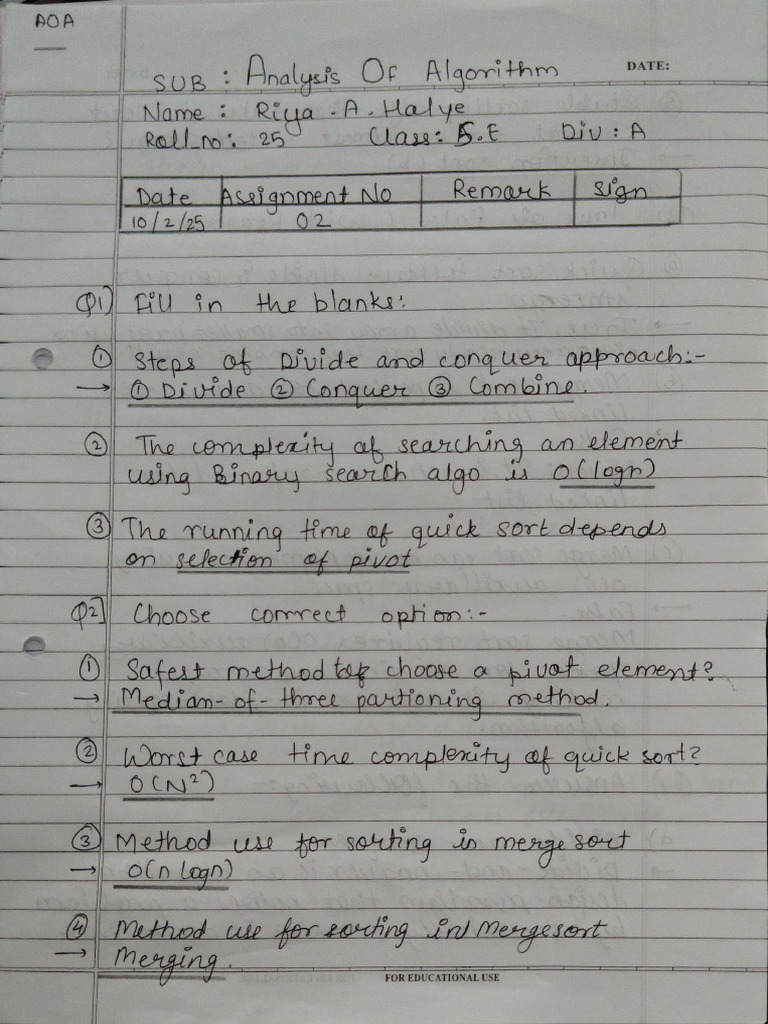 AOA
DATE:
SUB : Analysis Of Algorithm
Name : Riya . A . Halye
Roll_no: 25 Class: S.E Div : A
Date Assignment No Remark Sign
10/2/25 02
Q1) Fill in the blanks:
① Steps of Divide and conquer approach:-
→ ① Divide ② Conquer ③ Combine.
② The complexity of searching an element
using Binary search algo is O(logn)
③ The running time of quick sort depends
on selection of pivot
Q2] Choose correct option:-
① Safest method to choose a pivot element?
→ Median-of-three partioning method.
② Worst case time complexity of quick sort?
→ O(N²)
③ Method use for sorting in merge sort
→ O(n logn)
④ Method use for sorting in mergesort
→ Merging.
FOR EDUCATIONAL USE